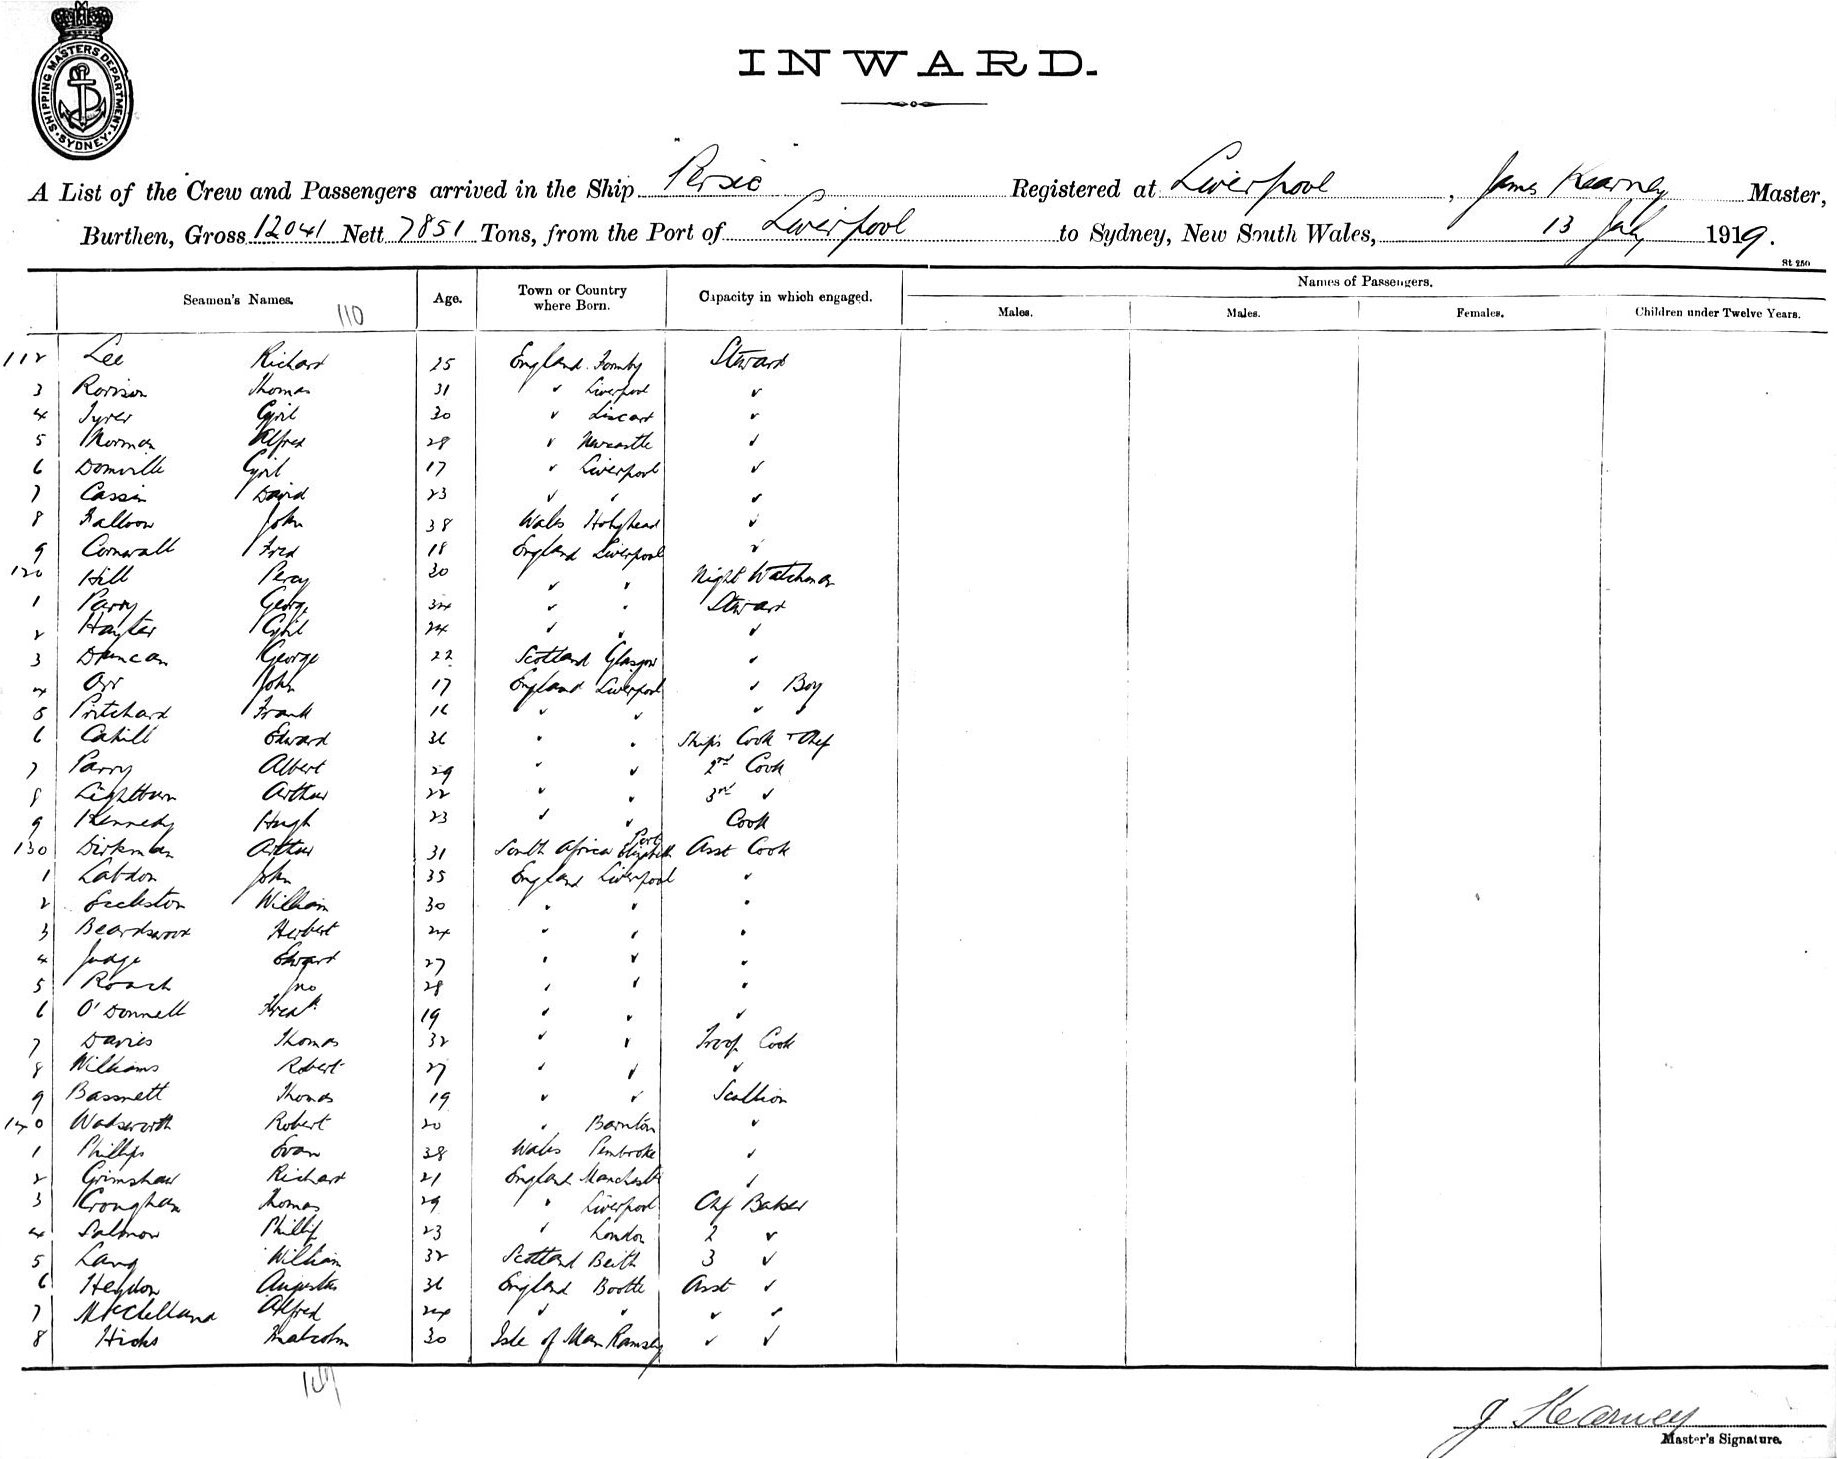 SHIPPING MASTERS DEPARTMENT · SYDNEY ·
INWARD.
A List of the Crew and Passengers arrived in the Ship "Persic" Registered at Liverpool, James Kearney Master,
Burthen, Gross 12041 Nett 7851 Tons, from the Port of Liverpool to Sydney, New South Wales, 13 July 1919.
St 250
Seamen's Names. Age. Town or Country where Born. Capacity in which engaged. Names of Passengers.
110 Males. Males. Females. Children under Twelve Years.
112 Lee Richard 25 England Formby Steward
3 Rorison Thomas 31 " Liverpool "
4 Tyrer Cyril 30 " Liscard "
5 Norman Alfred 28 " Newcastle "
6 Domville Cyril 17 " Liverpool "
7 Cassin David 23 " " "
8 Falloon John 38 Wales Holyhead "
9 Cornwall Fred 18 England Liverpool "
120 Hill Percy 30 " " Night Watchman
1 Parry George 34 " " Steward
2 Hayter Cyril 24 " " "
3 Duncan George 22 Scotland Glasgow "
4 Orr John 17 England Liverpool " Boy
5 Pritchard Frank 16 " " " "
6 Cahill Edward 36 " " Ships Cook + Chef
7 Parry Albert 29 " " 2nd Cook
8 Lightburn Arthur 22 " " 3rd "
9 Kennedy Hugh 23 " " Cook
130 Dirkman Arthur 31 South Africa Port Elizabeth Asst Cook
1 Labdon John 35 England Liverpool "
2 Eccleston William 30 " " "
3 Beardswood Herbert 24 " " "
4 Judge Edward 27 " " "
5 Roach Jno 28 " " "
6 O'Donnell Fredk 19 " " "
7 Davies Thomas 32 " " Troop Cook
8 Williams Robert 27 " " "
9 Bassnett Thomas 19 " " Scullion
140 Wadsworth Robert 20 " Barnton "
1 Phillips Evan 38 Wales Pembroke "
2 Grimshaw Richard 21 England Manchester "
3 Croughan Thomas 29 " Liverpool Chf Baker
4 Salmon Phillip 23 " London 2 "
5 Lang William 32 Scotland Beith 3 "
6 Heydon Augustus 36 England Bootle Asst "
7 McClelland Alfred 24 " " " "
8 Hicks Malcolm 30 Isle of Man Ramsey " "
J Kearney
Master's Signature.